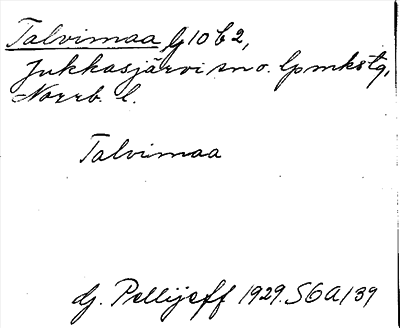 Talvimaa lj 10 b 2,
Jukkasjärvi sn o. lpmkstg,
Norrb. l.
Talvimaa
Pellijeff 1929. S 6 A 139